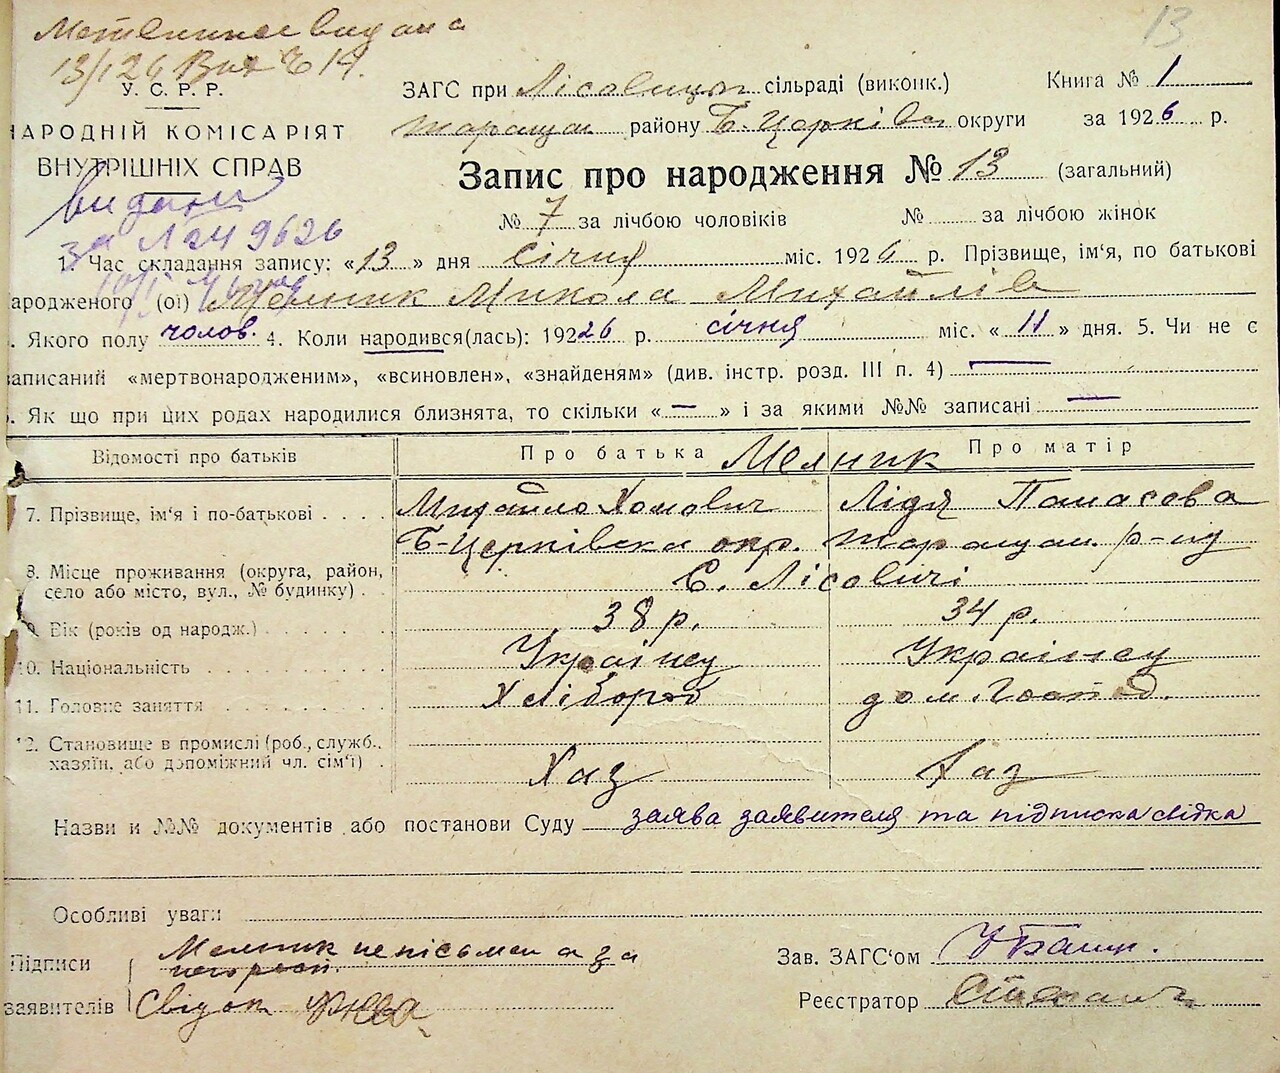 13
13/I 26
У. С. Р. Р.
АРОДНІЙ КОМІСАРІЯТ
ВНУТРІШНІХ СПРАВ
видани
за № 24 9626
ЗАГС при Лісовицьк сільраді (виконк.) Книга № 1
таращан району Б-Церківськ округи за 1926 р.
Запис про народження № 13 (загальний)
№ 7 за лічбою чоловіків № за лічбою жінок
1. Час складання запису: «13» дня січня міс. 1926 р. Прізвище, ім'я, по батькові
ародженого (ої) Мельник Микола Михайлів
. Якого полу чолов. 4. Коли народився(лась): 19226 р. січня міс. «11» дня. 5. Чи не є
записаний «мертвонародженим», «всиновлен», «знайденям» (див. інстр. розд. III п. 4) —
. Як що при цих родах народилися близнята, то скільки «—» і за якими №№ записані —
Відомості про батьків Про батька Мельник Про матір
7. Прізвище, ім'я і по-батькові . . . . Михайло Хомович Лідя Панасова
Б-Церківська окр. таращан. р-ну
8. Місце проживання (округа, район, село або місто, вул., № будинку) . . С. Лісовичі
9. Вік (років од народж.) 38 р. 34 р.
10. Національність Українец Українец
11. Головне заняття Хлібороб дом. господ.
12. Становище в промислі (роб., служб., хазяїн, або допоміжний чл. сім'ї) . Хаз Хаз
Назви и №№ документів або постанови Суду заява заявителя та підписка свідка
Особливі уваги
Підписи Мельник неписьмен а за
заявителів Свідок
Зав. ЗАГС'ом
Реєстратор